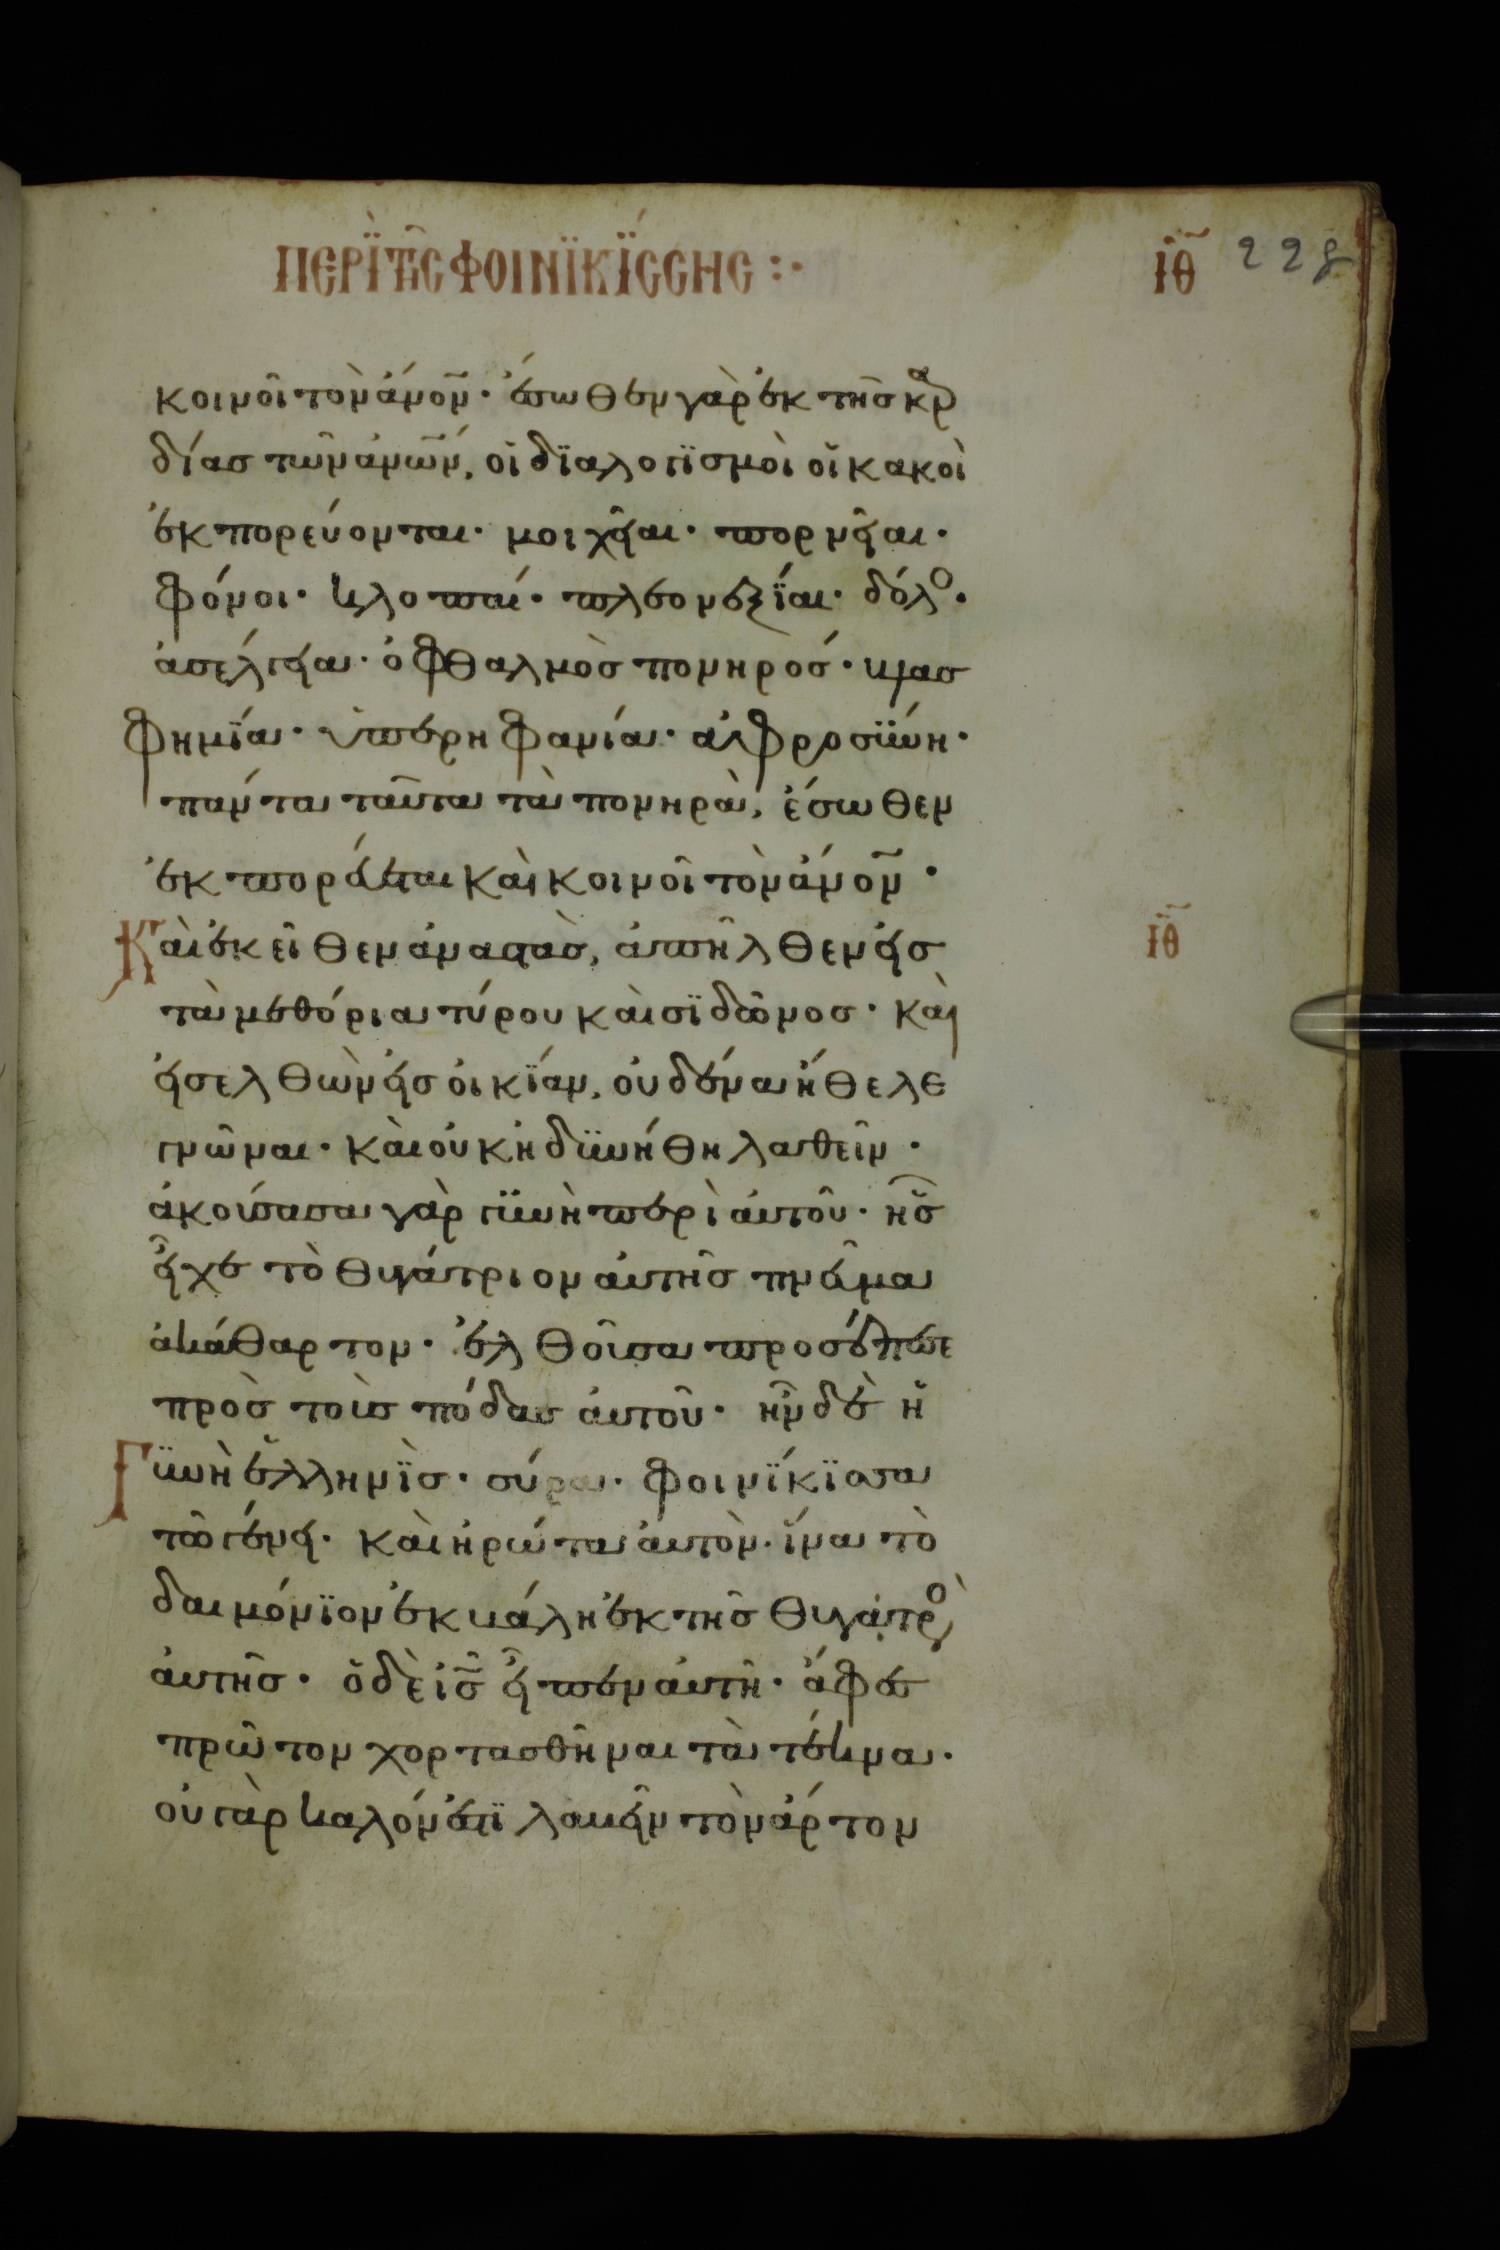 ΠΕΡῚ ΤΗ͂Ϲ ΦΟΙΝΙΚΊϹϹΗϹ :· ΙΘ 228
κοινοῖ τὸν ἄνον̅· ἔσωθεν γὰρ ἐκ τῆς καρ
δίας τῶν ἀνων̅, οἱ διαλογισμοὶ οἱ κακοὶ
ἐκπορεύονται· μοιχεῖαι· πορνεῖαι·
φόνοι· κλοπαί· πλεονεξίαι· δόλο·
ἀσέλγειαι· ὀφθαλμὸς πονηρός· βλας
φημία· ὑπερηφανία· ἀφροσύνη·
πάντα ταῦτα τὰ πονηρὰ, ἔσωθεν
ἐκπορεύεται καὶ κοινοῖ τὸν ἄνον̅·
Καὶ ἐκεῖθεν ἀναστὰς, ἀπῆλθεν εἰς ΙΘ
τὰ μεθόρια τύρου καὶ σϊδῶνος· καὶ
εἰσελθὼν εἰς οἰκίαν, οὐδένα ἤθελε
γνῶναι· καὶ οὐκ ἠδυνήθη λαθεῖν·
ἀκούσασα γὰρ γυνὴ περὶ αὐτοῦ· ἧς
εἶχε τὸ θυγάτριον αὐτῆς πνεῦμα
ἀκάθαρτον· ἐλθοῦσα προσέπεσε
πρὸς τοὺς πόδας αὐτοῦ· ἦν δὲ ἡ
Γυνὴ ἑλληνὶς· σύρα· φοινίκισσα
τῶ γένει· καὶ ἠρώτα αὐτὸν· ἵνα τὸ
δαιμόνϊον ἐκβάλη ἐκ τῆς θυγατρὸ
αὐτῆς· ὁ δὲ ἰς̅ εἶπεν αὐτῆ· ἄφες
πρῶτον χορτασθῆναι τὰ τέκνα·
οὐ γὰρ καλόν ἐστϊ λαβεῖν τὸν ἄρτον